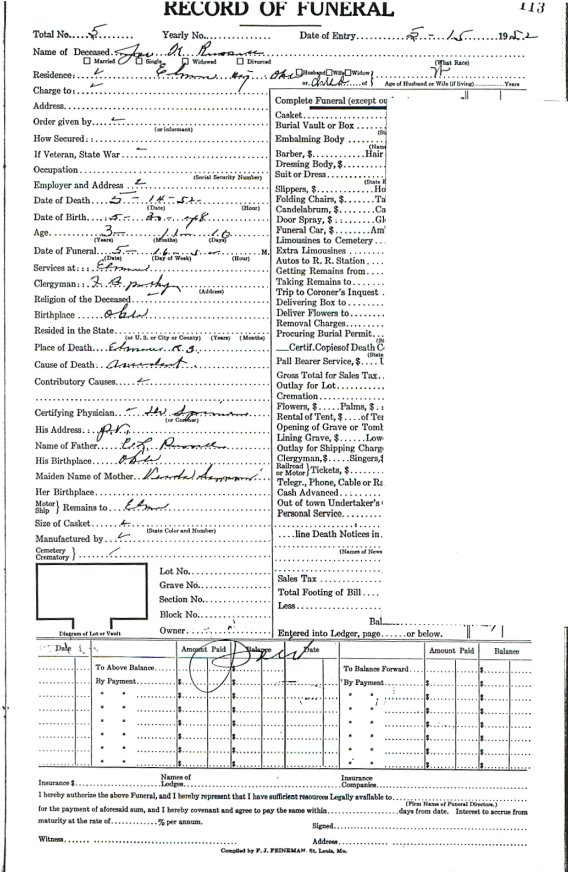 RECORD OF FUNERAL
113
Total No. 5 Yearly No. Date of Entry 5-15 1952
Name of Deceased
Married Single Widowed Divorced (What Race)
Residence: Elmer Husband Wife Widow of Age of Husband or Wife (if living) Years
Charge to:
Address
Order given by
(or informant)
How Secured:
If Veteran, State War
Occupation
(Social Security Number)
Employer and Address
Date of Death 5-14-52
(Date) (Hour)
Date of Birth 5-
Age 3- 11-
(Years) (Months) (Days)
Date of Funeral 5- 16 M.
(Date) (Day of Week) (Hour)
Services at: Elmer
Clergyman:
(Address)
Religion of the Deceased
Birthplace Okla
Resided in the State
(or U. S. or City or County) (Years) (Months)
Place of Death Elmer
Cause of Death Accident
Contributory Causes
Certifying Physician
(or Coroner)
His Address
Name of Father
His Birthplace Okla
Maiden Name of Mother
Her Birthplace
Motor Ship } Remains to Elmer
Size of Casket
(State Color and Number)
Manufactured by
Cemetery Crematory }
Lot No.
Grave No.
Section No.
Block No.
Owner
Diagram of Lot or Vault
Complete Funeral (except ou
Casket
Burial Vault or Box
Embalming Body
Barber, $ Hair
Dressing Body, $
Suit or Dress
Slippers, $ Ho
Folding Chairs, $ Ta
Candelabrum, $ Ca
Door Spray, $ Gl
Funeral Car, $ Am
Limousines to Cemetery
Extra Limousines
Autos to R. R. Station
Getting Remains from
Taking Remains to
Trip to Coroner's Inquest
Delivering Box to
Deliver Flowers to
Removal Charges
Procuring Burial Permit
Certif. Copies of Death C
Pall Bearer Service, $
Gross Total for Sales Tax
Outlay for Lot
Cremation
Flowers, $ Palms, $
Rental of Tent, $ of Ter
Opening of Grave or Tomb
Lining Grave, $ Low
Outlay for Shipping Charg
Clergyman, $ Singers, $
Railroad or Motor } Tickets, $
Telegr., Phone, Cable or Ra
Cash Advanced
Out of town Undertaker's
Personal Service
line Death Notices in
(Names of News
Sales Tax
Total Footing of Bill
Less
Bal
Entered into Ledger, page or below.
Date Amount Paid Balance Date Amount Paid Balance
Paid
To Above Balance $ $ To Balance Forward $
By Payment $ $ By Payment $ $
" " $ $ " " $ $
" " $ $ " " $ $
" " $ $ " " $ $
" " $ $ " " $ $
" " $ $ " " $ $
Insurance $ Names of Lodges Insurance Companies
I hereby authorize the above Funeral, and I hereby represent that I have sufficient resources Legally available to
(Firm Name of Funeral Directors.)
for the payment of aforesaid sum, and I hereby covenant and agree to pay the same within days from date. Interest to accrue from
maturity at the rate of % per annum.
Signed
Witness Address
Compiled by F. J. FEINEMAN. St. Louis, Mo.